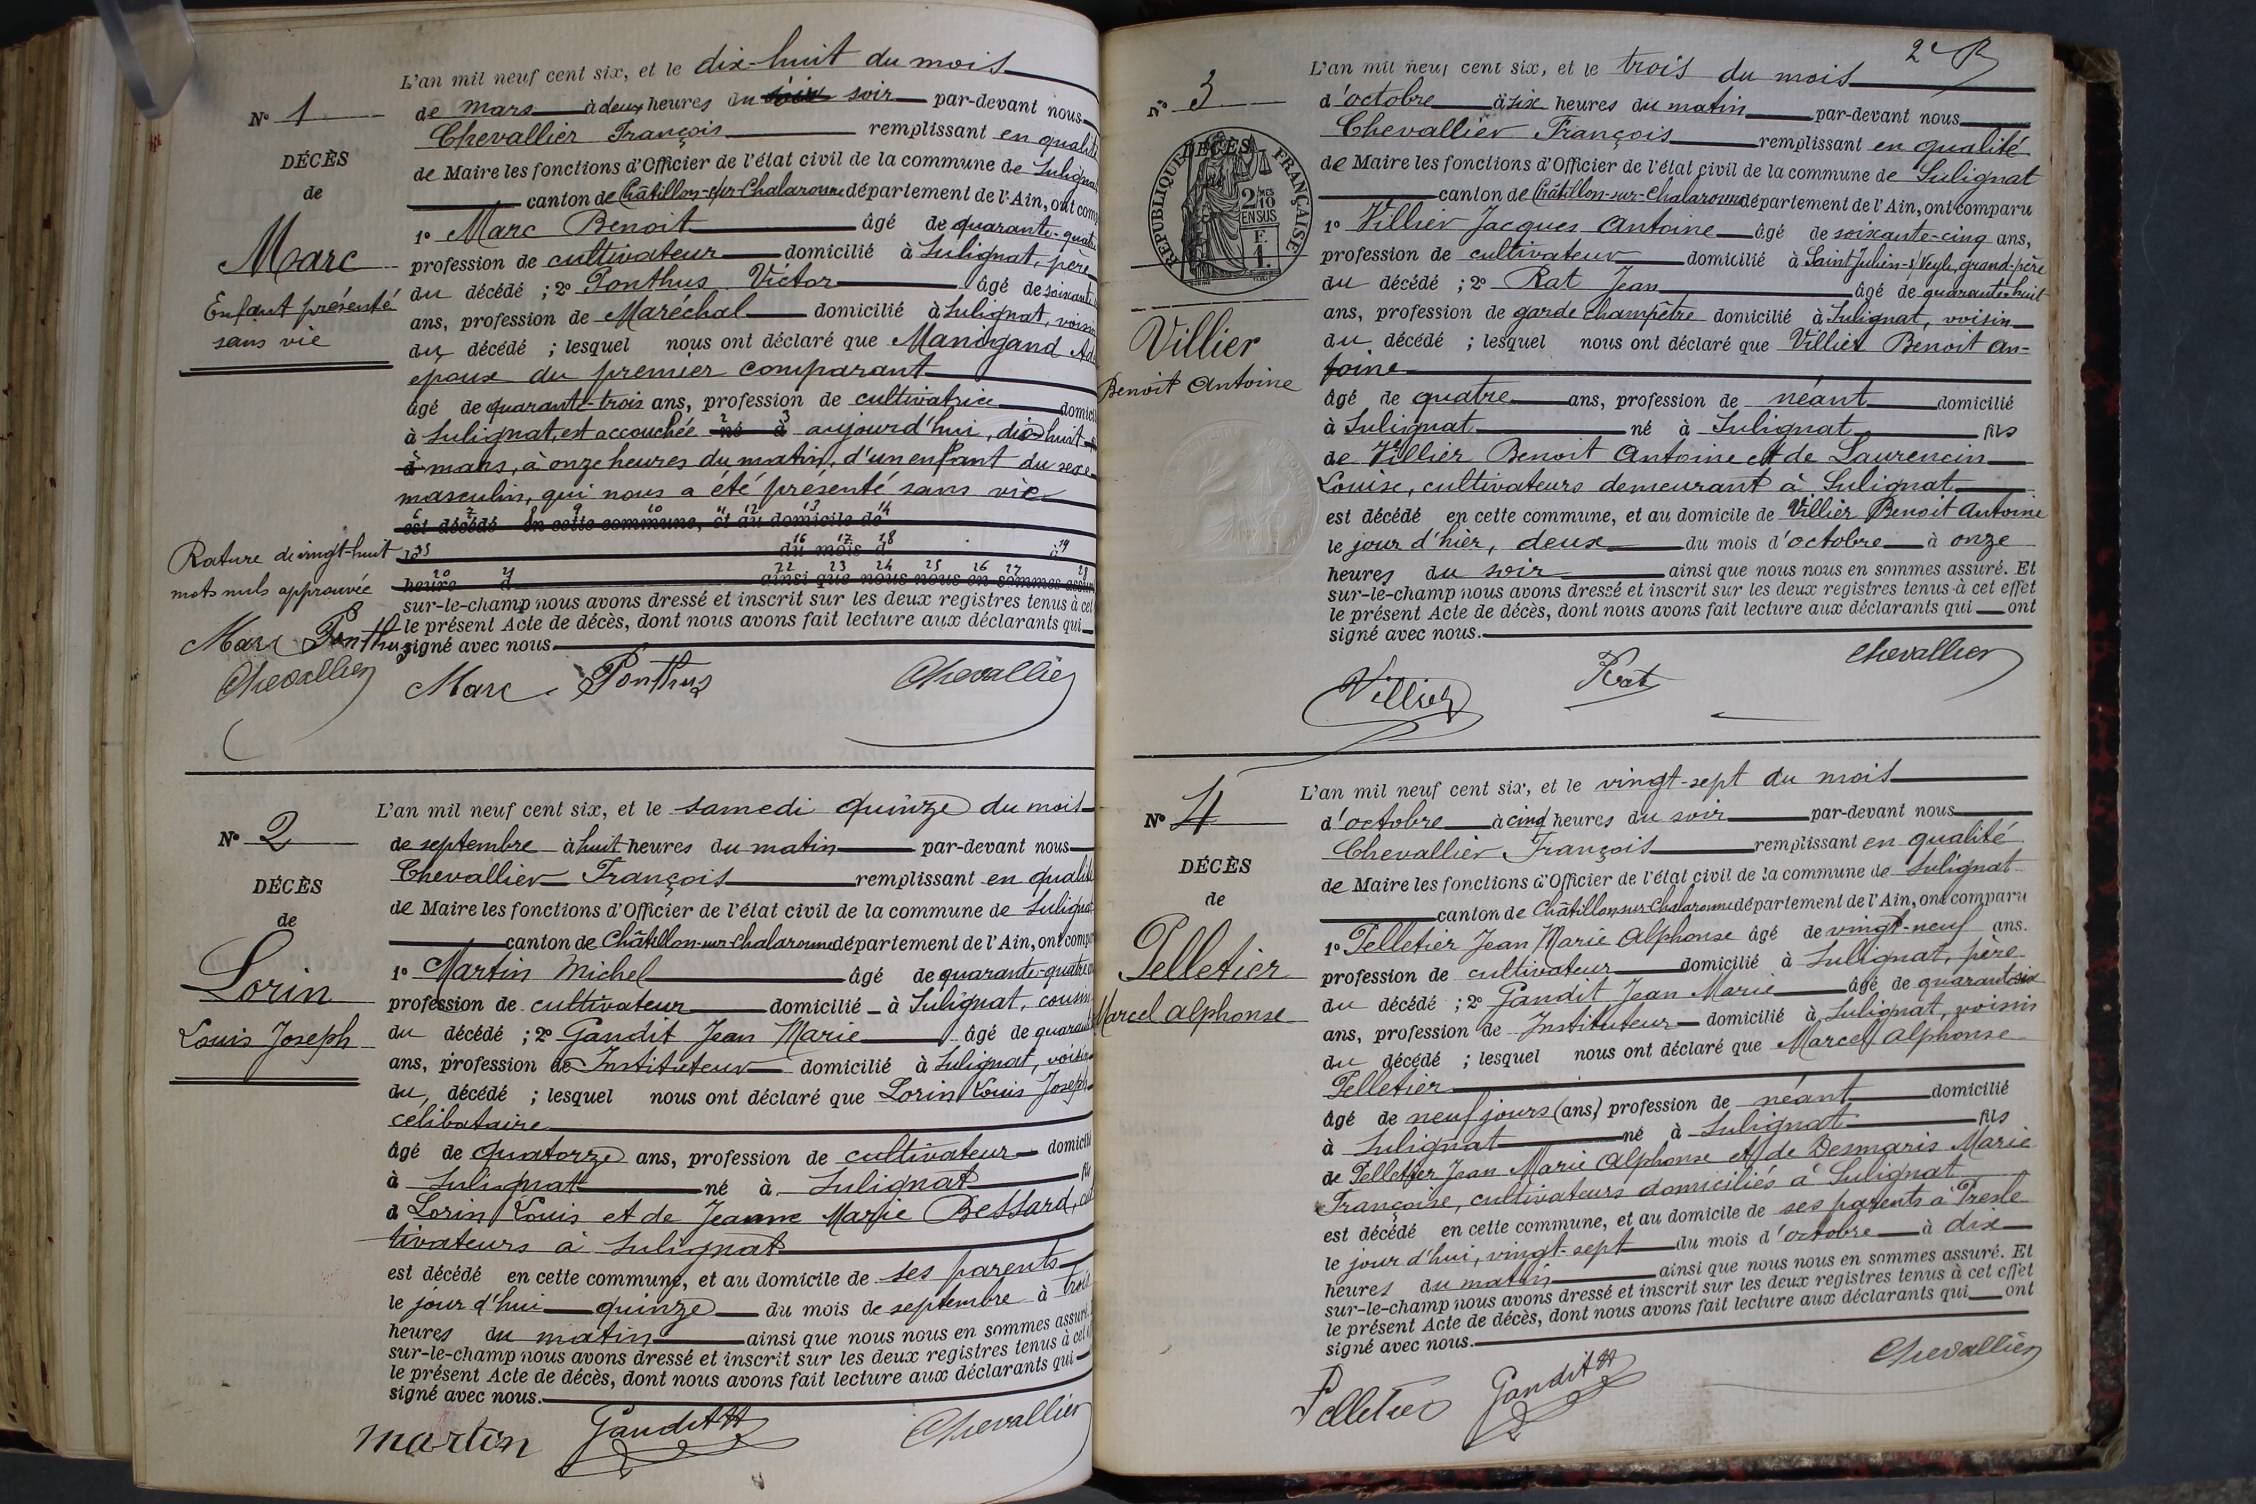 L'an mil neuf cent six, et le dix-huit du mois
Nº 1
de mars à deux heures du soir par-devant nous
Chevallier François remplissant en qualité
DÉCÈS
de Maire les fonctions d'Officier de l'état civil de la commune de Sulignat
de
canton de Châtillon-sur-Chalaronne département de l'Ain, ont comp
Marc
1º Marc Benoit âgé de quarante-quatre
profession de cultivateur domicilié à Sulignat, père
Enfant présenté
du décédé ; 2º Ponthus Victor âgé de soixante
sans vie
ans, profession de Maréchal domicilié à Sulignat, voisin
du décédé ; lesquel nous ont déclaré que Manigand Ad
epoux du premier comparant
âgé de quarante-trois ans, profession de cultivatrice domici
à Sulignat, est accouchée né à aujourd'hui, dix-huit
mars, à onze heures du matin, d'un enfant du sexe
masculin, qui nous a été présenté sans vie
est décédé en cette commune, et au domicile de
Rature de vingt-huit
le du mois d à
mots nuls approuvée
heure d ainsi que nous nous en sommes assuré
sur-le-champ nous avons dressé et inscrit sur les deux registres tenus à cet
le présent Acte de décès, dont nous avons fait lecture aux déclarants qui
Marc Ponthus
signé avec nous.
Chevallier
Marc Ponthus Chevallier
L'an mil neuf cent six, et le samedi quinze du mois
Nº 2
de septembre à huit heures du matin par-devant nous
Chevallier François remplissant en qualité
DÉCÈS
de Maire les fonctions d'Officier de l'état civil de la commune de Sulignat
de
canton de Châtillon-sur-Chalaronne département de l'Ain, ont comp
Lorin
1º Martin Michel âgé de quarante-quatre
profession de cultivateur domicilié à Sulignat, cousin
Louis Joseph
du décédé ; 2º Gandit Jean Marie âgé de quarante
ans, profession de Instituteur domicilié à Sulignat, voisin
du décédé ; lesquel nous ont déclaré que Lorin Louis Joseph
célibataire
âgé de quatorze ans, profession de cultivateur domicilié
à Sulignat né à Sulignat fils
d Lorin Louis et de Jeanne Marie Bessard, cul
tivateurs à Sulignat
est décédé en cette commune, et au domicile de ses parents
le jour d'hui quinze du mois de septembre à trois
heures du matin ainsi que nous nous en sommes assuré.
sur-le-champ nous avons dressé et inscrit sur les deux registres tenus à cet
le présent Acte de décès, dont nous avons fait lecture aux déclarants qui
signé avec nous.
martin Gandit Chevallier
2e R
L'an mil neuf cent six, et le trois du mois
Nº 3
d'octobre à six heures du matin par-devant nous
Chevallier François remplissant en qualité
DÉCÈS
RÉPUBLIQUE FRANÇAISE
2/10 MES EN SUS
F. 1.
de Maire les fonctions d'Officier de l'état civil de la commune de Sulignat
canton de Châtillon-sur-Chalaronne département de l'Ain, ont comparu
1º Villier Jacques Antoine âgé de soixante-cinq ans,
profession de cultivateur domicilié à Saint Julien-s/Veyle, grand-père
du décédé ; 2º Rat Jean âgé de quarante-huit
ans, profession de garde champêtre domicilié à Sulignat, voisin
Villier
du décédé ; lesquel nous ont déclaré que Villier Benoit An-
toine
Benoit Antoine
âgé de quatre ans, profession de néant domicilié
à Sulignat né à Sulignat fils
de Villier Benoit Antoine et de Laurencin
Louise, cultivateurs demeurant à Sulignat
est décédé en cette commune, et au domicile de Villier Benoit Antoine
le jour d'hier, deux du mois d'octobre à onze
heures du soir ainsi que nous nous en sommes assuré. Et
sur-le-champ nous avons dressé et inscrit sur les deux registres tenus à cet effet
le présent Acte de décès, dont nous avons fait lecture aux déclarants qui ont
signé avec nous.
Villier Rat Chevallier
L'an mil neuf cent six, et le vingt-sept du mois
Nº 4
d'octobre à cinq heures du soir par-devant nous
Chevallier François remplissant en qualité
DÉCÈS
de Maire les fonctions d'Officier de l'état civil de la commune de Sulignat
de
canton de Châtillon-sur-Chalaronne département de l'Ain, ont comparu
Pelletier
1º Pelletier Jean Marie Alphonse âgé de vingt-neuf ans.
profession de cultivateur domicilié à Sulignat, père
Marcel Alphonse
du décédé ; 2º Gandit Jean Marie âgé de quarante-six
ans, profession de Instituteur domicilié à Sulignat, voisin
du décédé ; lesquel nous ont déclaré que Marcel Alphonse
Pelletier
âgé de neuf jours (ans) profession de néant domicilié
à Sulignat né à Sulignat fils
de Pelletier Jean Marie Alphonse et de Desmaris Marie
Françoise, cultivateurs domiciliés à Sulignat
est décédé en cette commune, et au domicile de ses parents à Presle
le jour d'hui, vingt-sept du mois d'octobre à dix
heures du matin ainsi que nous nous en sommes assuré. Et
sur-le-champ nous avons dressé et inscrit sur les deux registres tenus à cet effet
le présent Acte de décès, dont nous avons fait lecture aux déclarants qui ont
signé avec nous.
Pelletier Gandit Chevallier